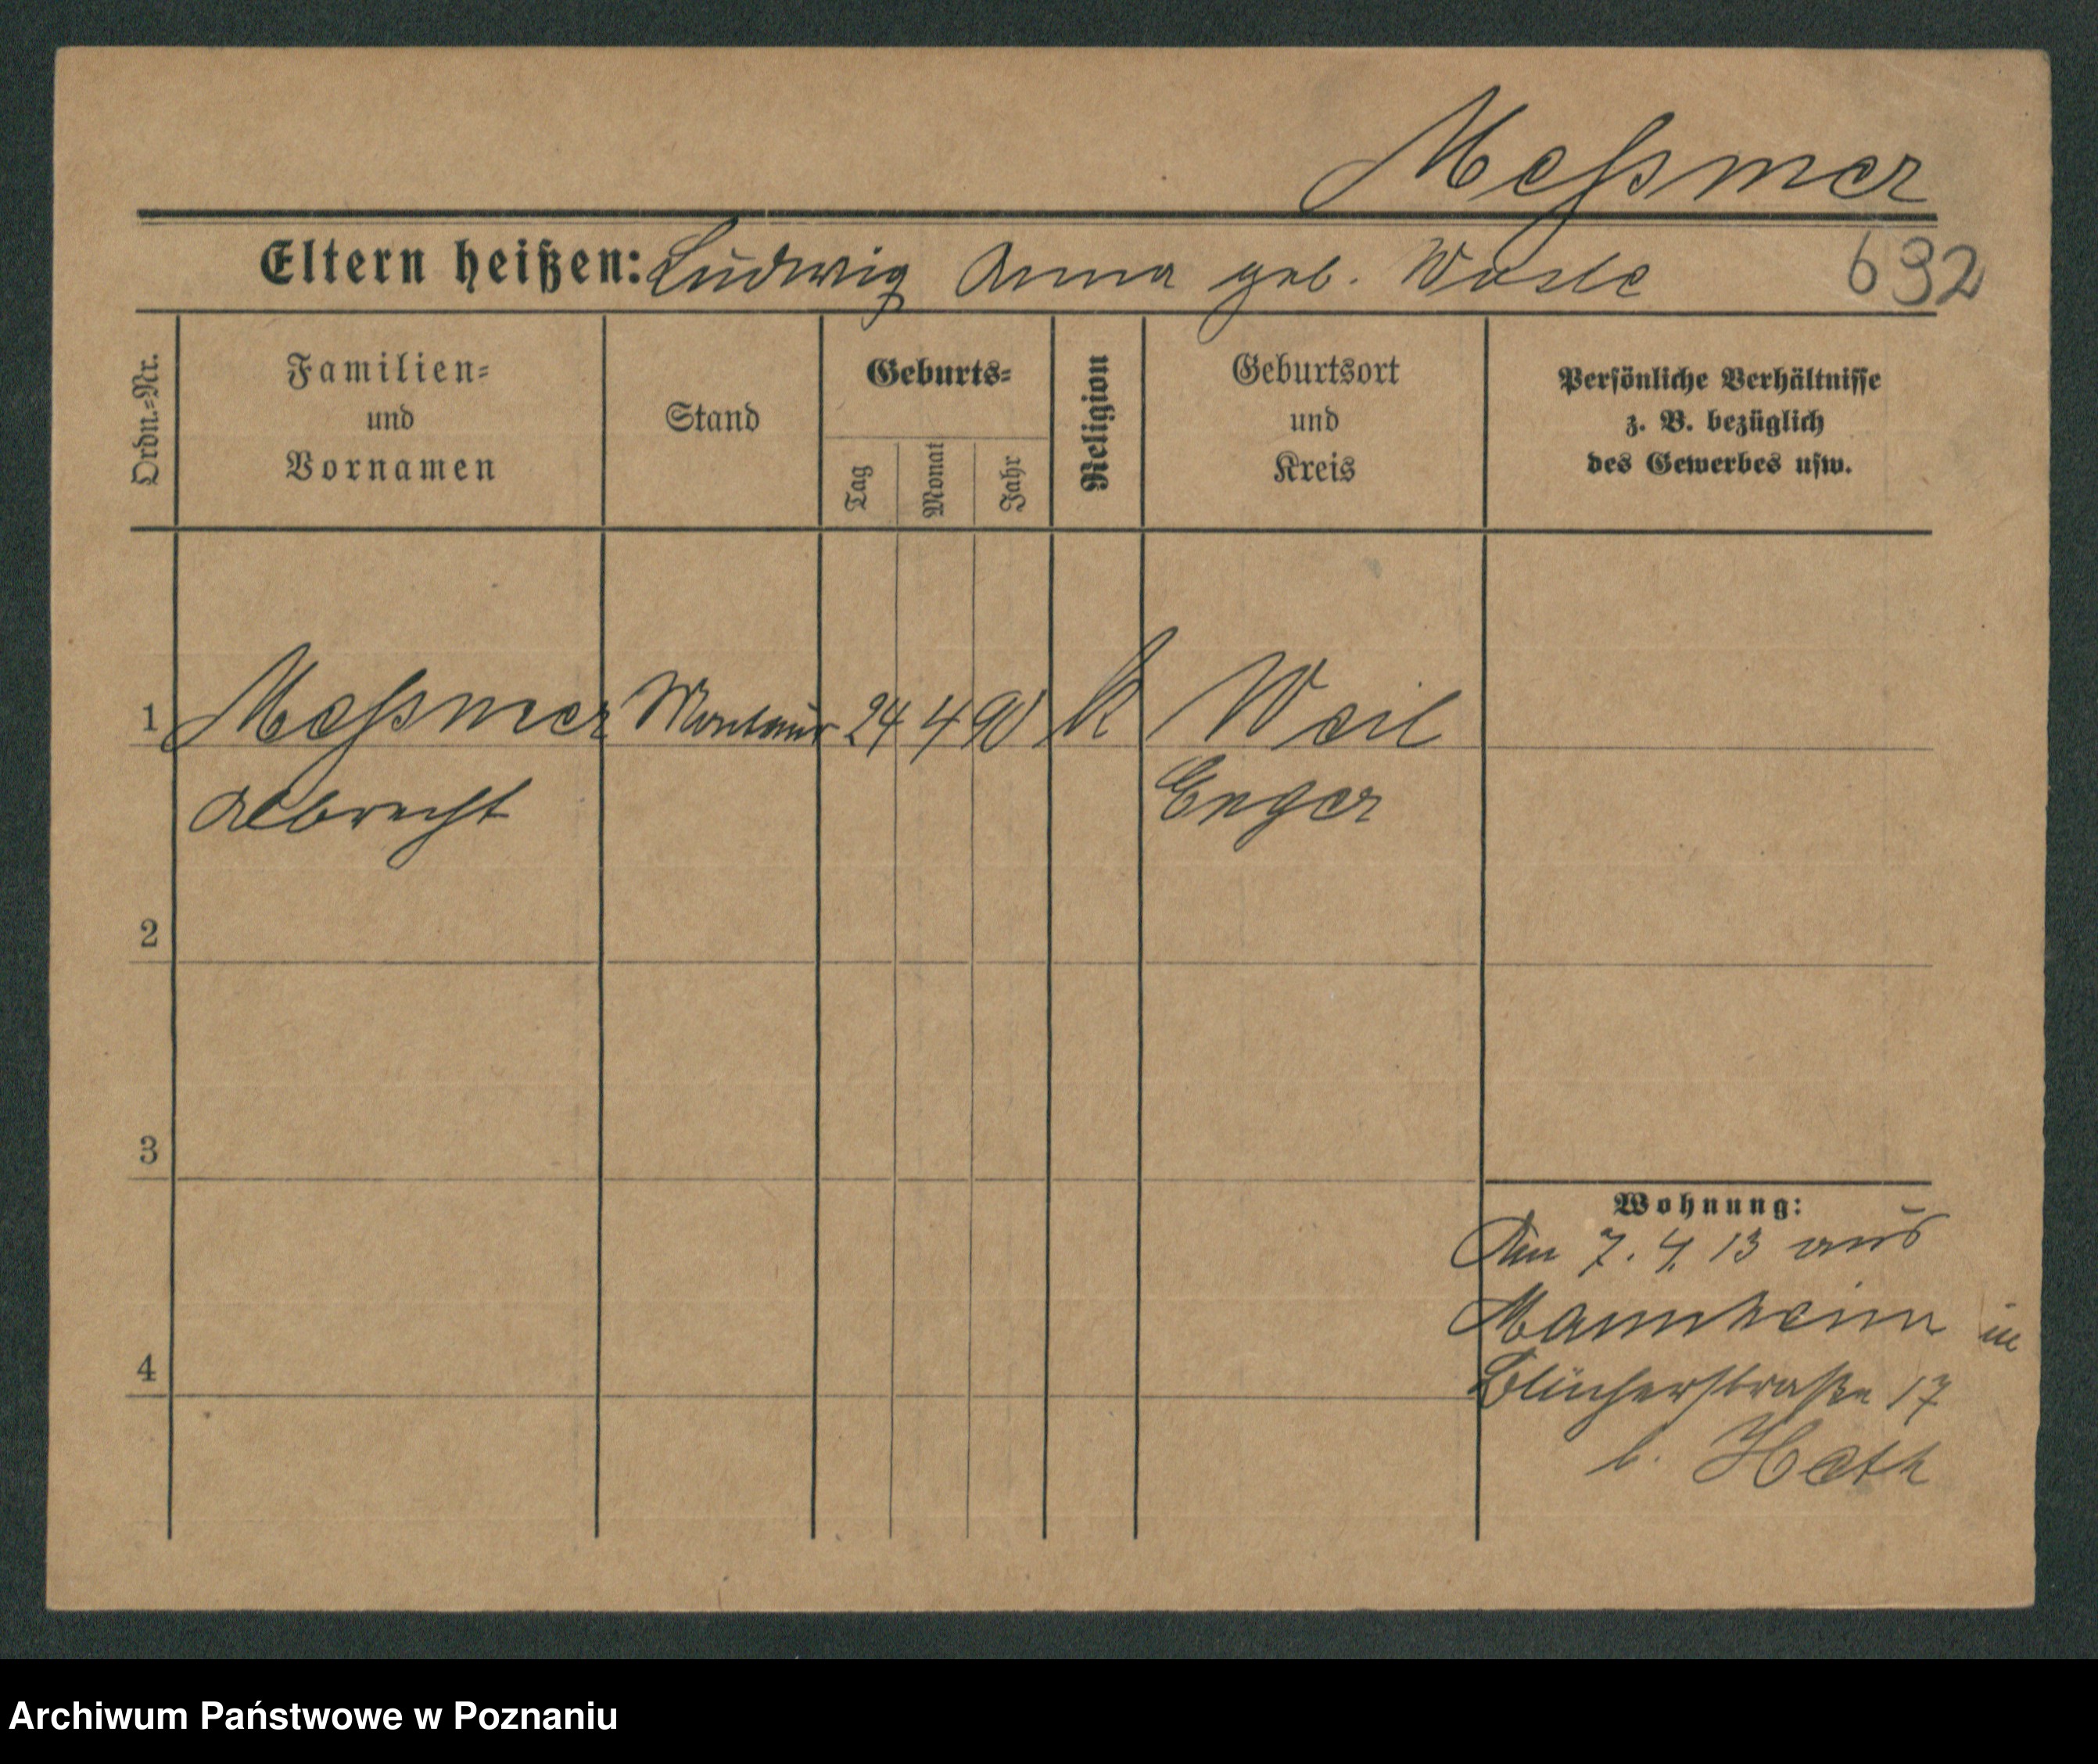 Meßmer
Eltern heißen: Ludwig Anna geb. Wasle
692
Ordn.=Nr.
Familien=
und
Vornamen
Stand
Geburts=
Tag
Monat
Jahr
Religion
Geburtsort
und
Kreis
Persönliche Verhältnisse
z. B. bezüglich
des Gewerbes usw.
1 Meßmer Monteur 24 4 90 k Weil
Albrecht Enger
2
3
4
Wohnung:
Am 7. 4. 13 aus
Mannheim in
Blücherstraße 17
b. Hoth
Archiwum Państwowe w Poznaniu